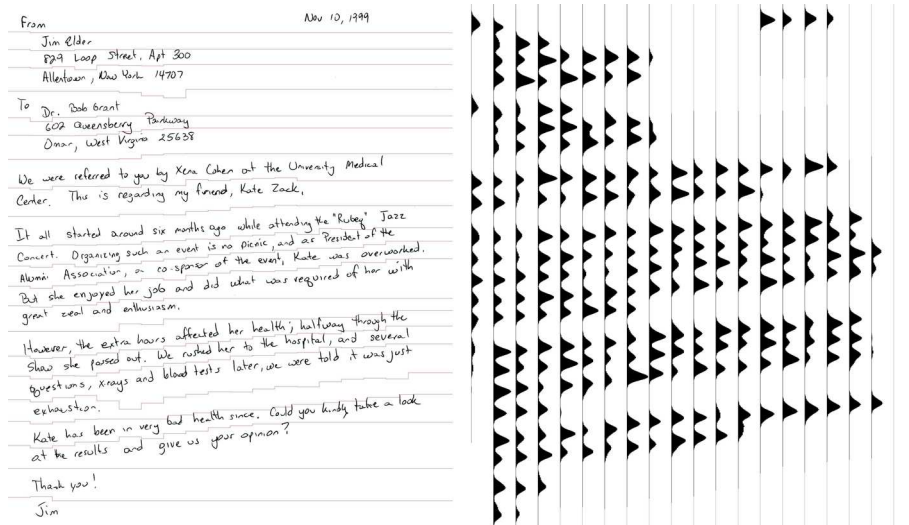 From
Nov 10, 1999
Jim Elder
829 Loop Street, Apt 300
Allentown, New York 14707
To
Dr. Bob Grant
602 Queensberry Parkway
Omar, West Virginia 25638
We were referred to you by Xena Cohen at the University Medical
Center. This is regarding my friend, Kate Zack.
It all started around six months ago while attending the "Rubeq" Jazz
Concert. Organizing such an event is no picnic, and as President of the
Alumni Association, a co-sponsor of the event, Kate was overworked.
But she enjoyed her job and did what was required of her with
great zeal and enthusiasm.
However, the extra hours affected her health; halfway through the
show she passed out. We rushed her to the hospital, and several
questions, x-rays and blood tests later, we were told it was just
exhaustion.
Kate has been in very bad health since. Could you kindly take a look
at the results and give us your opinion?
Thank you!
Jim